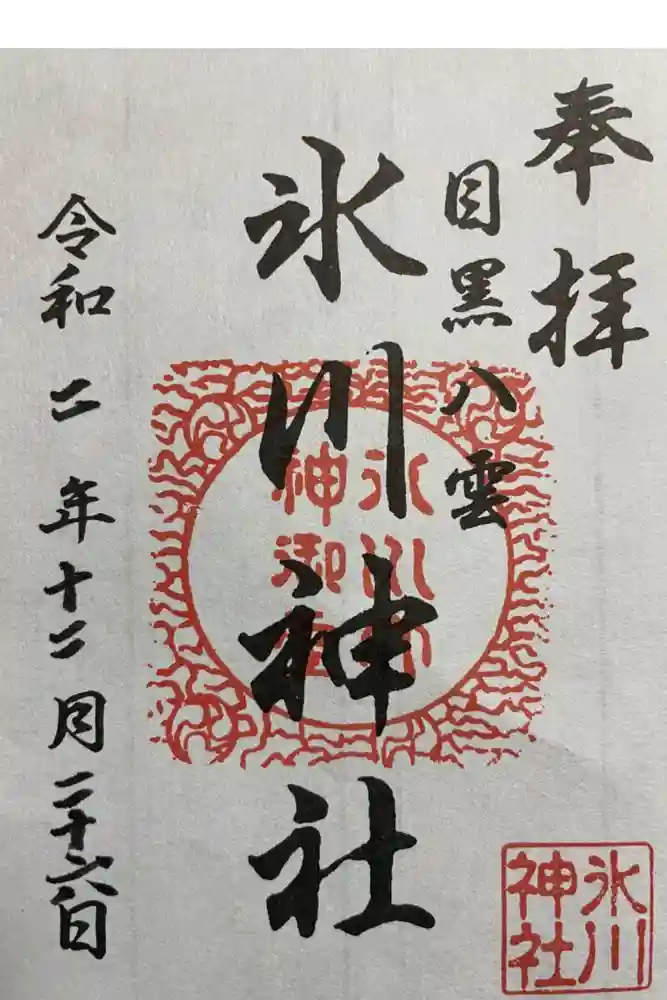 奉拝
目黒八雲
氷川神社
令和二年十二月二十六日
氷川神社